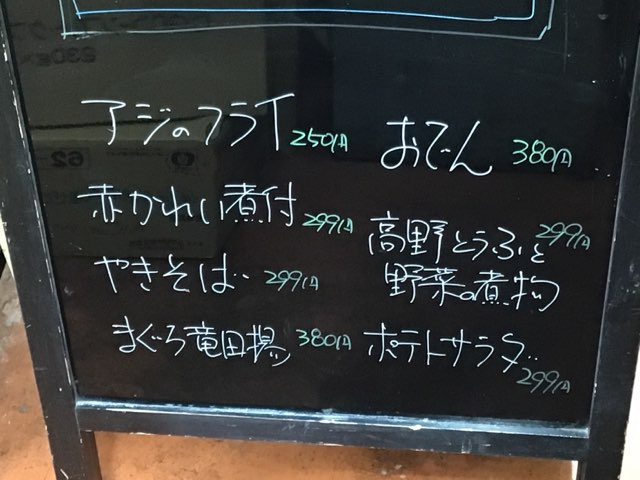 アジのフライ 250円
赤かれい煮付 299円
やきそば 299円
まぐろ竜田揚 380円
おでん 380円
高野とうふと 299円
野菜の煮物
ポテトサラダ
299円